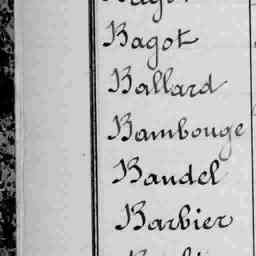 Bagot
Ballard
Bambouge
Bandel
Barbier